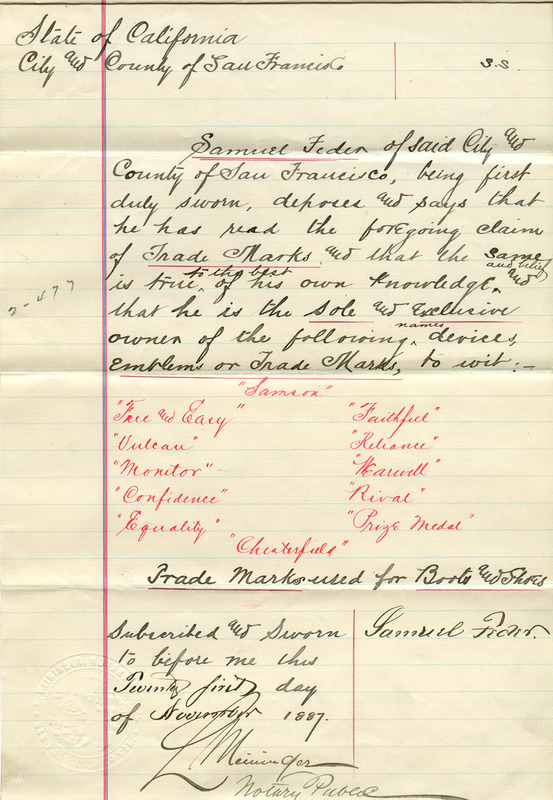 State of California
City and County of San Francisco S.S.
Samuel Feder of said City and
County of San Francisco, being first
duly sworn, deposes and says that
he has read the foregoing claim
of Trade Marks and that the same
to the best and belief
is true, of his own knowledge, and
that he is the sole and exclusive
names
owner of the following, devices,
Emblems or Trade Marks, to wit:-
2-477
"Samson"
"Free and Easy" "Faithful"
"Vulcan" "Reliance"
"Monitor" "Harwell"
"Confidence" "Rival"
"Equality" "Prize Medal"
"Chesterfield"
Trade Marks used for Boots and Shoes
Subscribed and Sworn Samuel Feder.
to before me this
Twenty first day
of November 1887.
L Meininger
Notary Public